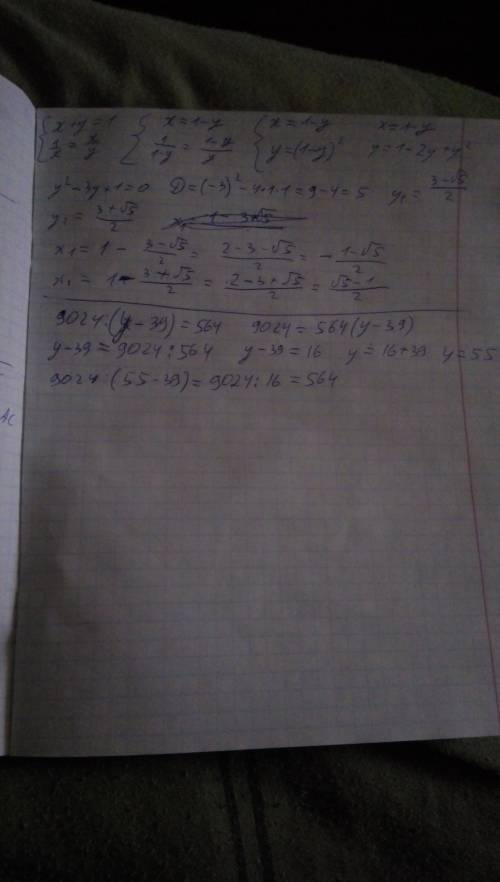 { x+y=1 { x=1-y { x=1-y x=1-y
{ 1/x = x/y { 1/(1-y) = (1-y)/y { y=(1-y)² y=1-2y+y²
y²-3y+1=0 D=(-3)²-4·1·1=9-4=5 y₁= (3-√5)/2
y₂= (3+√5)/2
x₁=1- (3-√5)/2 = (2-3-√5)/2 = - (1-√5)/2
x₁= 1- (3+√5)/2 = (2-3+√5)/2 = (√5-1)/2
9024:(y-39)=564 9024=564(y-39)
y-39=9024:564 y-39=16 y=16+39 y=55
9024:(55-39)=9024:16=564